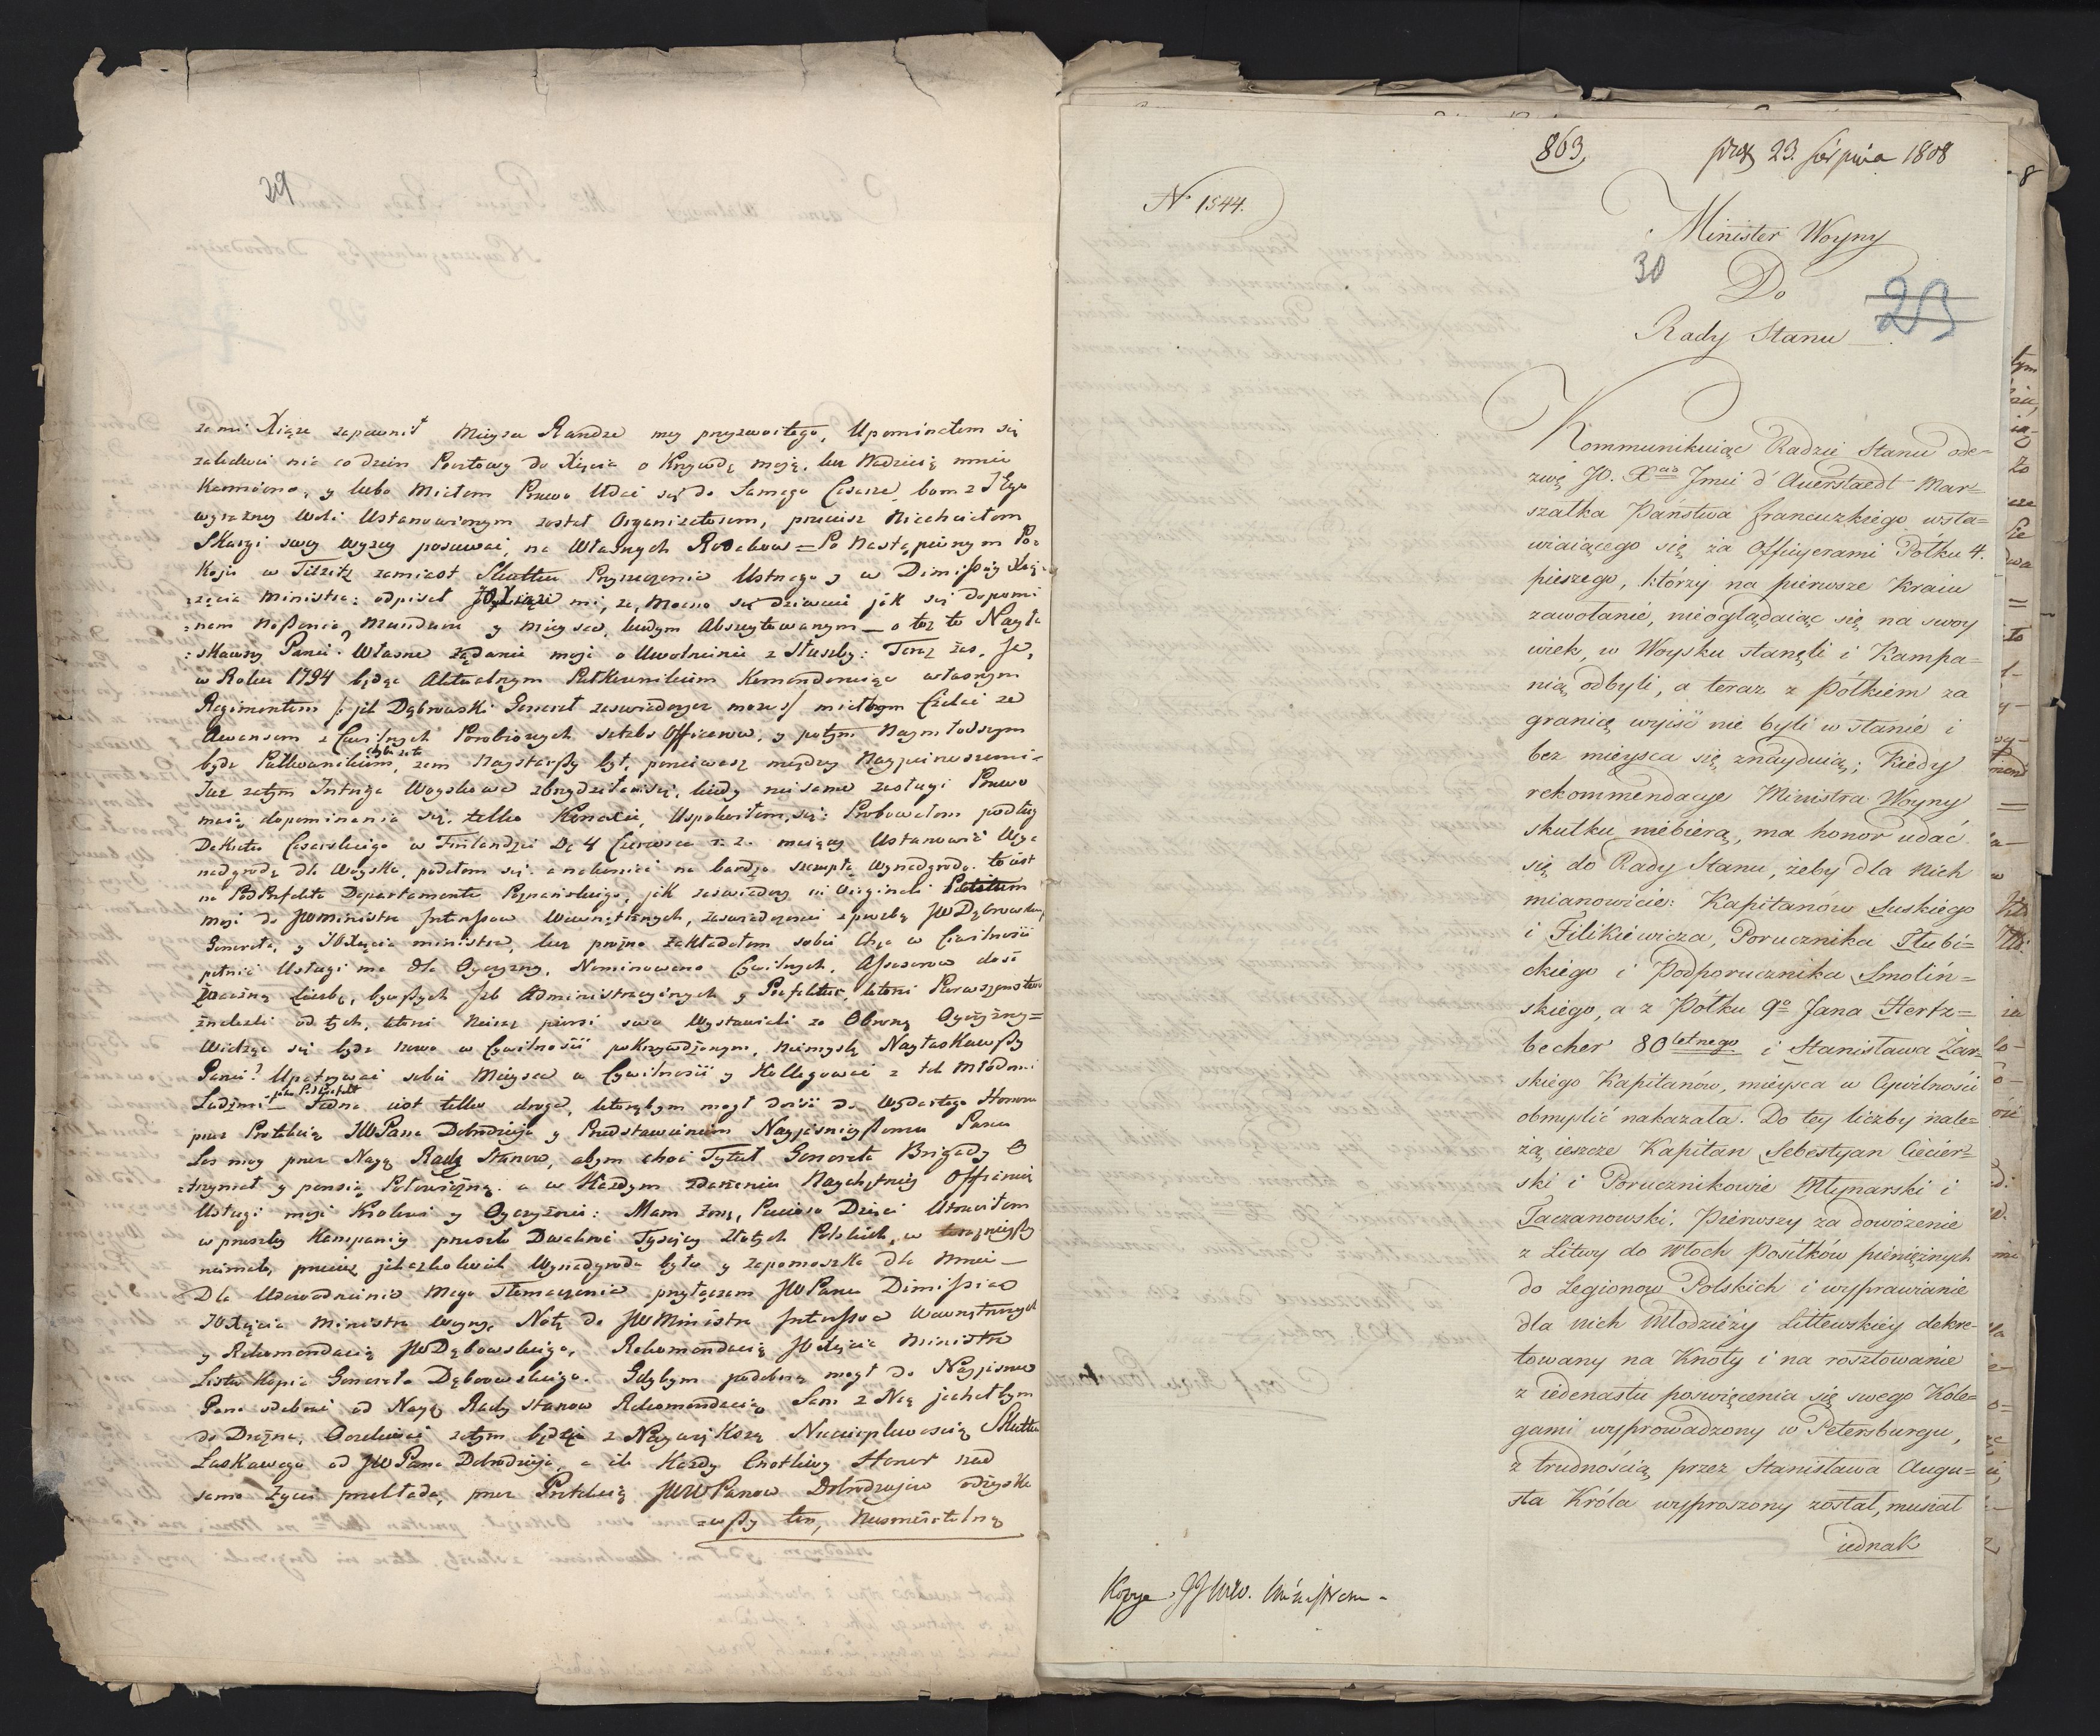 29
ze mi Xiąże zapewnił Mieysce Randze mey przyzwoitego, Upominałem się
zaledwie nie co dzień Pocztowy do Xięcia o Krzywdę moją, lecz Nadzieią mnie
Karmiono, y lubo Miałem Prawo Udać się do Samego Cesarza, bom z Jego
wyraźney Woli Ustanowionym został Organizatorem, przecież Niechciałem
Skargi swey wyżey posuwać, na Własnych Rodaków = Po Nastąpionym Po=
Koju w Tilzitz zamiast Skutku Przyrzeczenia Ustnego y w Dimissyi Xią=
=żęcia Ministra: odpisał JOXiąże mi, że, Mocno się dziwuie jak się dopomi
=nam Noszenia Munduru y Mieysca, będąc Abszytowanym — o toż to Nayła
:skawszy Panie! Własne żądanie moje o Uwolnienie z Służby: Teraz zaś. Ja,
w Roku 1794 będąc Aktualnym Pułkownikiem Komenderuiąc własnym
Regimentem /: jak Dąbrowski Generał zaświadczyć może :/ miałbym Czekać ze
Awansem z Cywilnych Porobionych sztabs Officerów, y potym Naymłodszym
bydź Pułkownikiem, chyba za to żem Naystarszy był, ponieważ między Naypierwszemi =
Już zatym Intryga Woyskowa zbrzydziła mi się, kiedy nie same zasługi Prawo
maią dopominania się, tylko Konexie, Uspokoiłem się: Probowałem podług
Dekretu Cesarskiego w Finlandzii De 4 Czerwca r. z. maiący Ustanowić Wy=
nadgrodę dla Woyska, podałem się a nakoniec na bardzo szczupłą wynadgrodę to iest
na PodPrefekta Departamentu Poznańskiego, jak zaświadczy in Originali
moje do JWMinistra Interessow Wewnętrznych, zaświadczenie z prośbą JWDąbrowskiego
Generała, y JOXięcia Ministra, lecz prożno zakładałem sobie Chęć w Cywilności
pełnić Usługi me dla Oyczyzny, Nominowano Cywilnych, Assesorow dość
Znaczną Liczbę, bywszych Izb Administracyinych y Prefektur, ktorzi Pierwszeństwo
znaleźli od tych, ktorzi Niosąc piersi swe Wystawili za Obronę Oyczyzny =
Widząc się bydź znowu w Cywilności pokrzywdzonym, Niemyślę Nayłaskawszy
Panie! Upatrywać sobie Mieysca w Cywilności y Kollegować z tak Młodemi
Ludzmi jako PodPrefekt — Jedna iest tylko droga, ktorąbym mogł doiść do Wydartego Honoru
przez Protekcią JWPana Dobrodzieja y Przedstawieniem Nayjaśnieyszemu Panu
Los moy przez Nayę Radę Stanow, abym choć Tytuł Generała Brigady O
=trzymał y pensią Połowiczną a w Każdym zdarzeniu Naychętniey Officiuię
Usługi moje Krolowi y Oyczyznie: Mam żonę, Pięcioro Dzieci Utraciłem
w przeszłey Kampanii przeszło Dwakroć Tysięcy Złotych Polskich, w teraznieyszy
niemało, przecież jakażkolwiek Wynadgroda była y zapomoszka dla Mnie —
Dla Udowodnienia Mego Tłomaczenia przyłączam JWPanu Dimissią
JOXięcia Ministra Woyny, Notę do JWMinistra Interessow Wewnętrznych
y Rekomendacią JWDąbrowskiego, Rekomendacią JOXięcia Ministra
Listu Kopia Generała Dąbrowskiego. Gdybym podobną mogł do Nayjaśnie
Pana odebrać od Nayę Rady Stanow Rekomendacią Sam z Nią jachałbym
do Drezna, Oczekiwać zatym będę z Naywiększą Niecierpliwością Skutku
Łaskawego od JWPana Dobrodzieja, a ile Każdy Cnotliwy Honor nad
samo Życie przekłada, przez Protekcią JWWPanow Dobrodziejow odzyska
=wszy ten, Nieśmiertelną
863.
prez 23. Sierpnia 1808
N. 1544.
Minister Woyny
30
Do
23
Rady Stanu
Kommunikuiąc Radzie Stanu ode=
zwę JO. Xcia Jmci d'Auerstaedt Mar=
szałka Państwa francuzkiego wsta=
wiaiącego się za Officyerami Półku 4.
pieszego, którzy na pierwsze Kraiu
zawołanie, nieoglądaiąc się na swoy
wiek, w Woysku stanęli i Kampa=
nią odbyli, a teraz z Półkiem za
granicę wyiść nie byli w stanie i
bez mieysca się znayduią; Kiedy
rekommendacye Ministra Woyny
skutku niebiorą, ma honor udać
się do Rady Stanu, żeby dla nich
mianowicie: Kapitanów Suskiego
i Filikiewicza, Porucznika Hłubi=
ckiego i Podporucznika Smoliń=
skiego, a z Półku 9o Jana Hertz=
becher 80letnego i Stanisława Żar=
skiego Kapitanów, mieysca w Cywilności
obmyslić nakazała. Do tey liczby nale=
żą ieszcze Kapitan Sebestyan Ciecier=
ski i Porucznikowie Młynarski i
Taczanowski. Pierwszy za dowożenie
z Litwy do Włoch Posiłków pieniężnych
do Legionow Polskich i wyprawianie
dla nich Młodzieży Littewskiey dekre=
towany na Knoty i na rosztowanie
z iedenastu poswięcenia się swego Kole=
gami wyprowadzony w Petersburgu,
z trudnością przez Stanisława Augu=
sta Króla wyproszony został, musiał
iednak
Kopye JJWW. Ministrom.